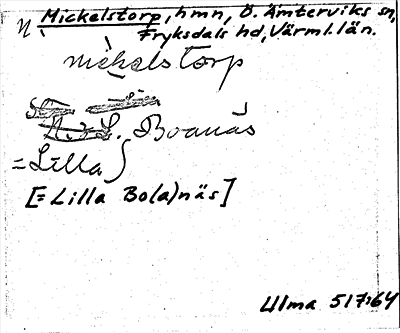 N Mickelstorp, hmn, Ö. Ämterviks sn,
Fryksdals hd, Värml. län.
mickelstorp
L. Boanäs
=Lilla
[= Lilla Bo(a)näs]
Ulma 517:64